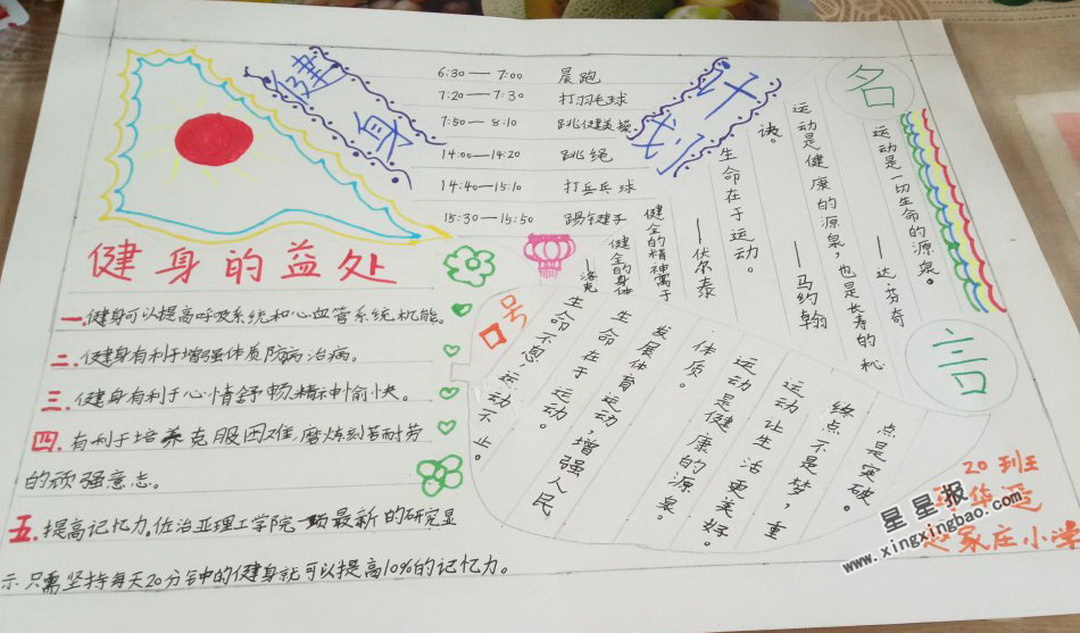 健身
计划
6:30 — 7:00 晨跑
7:20 — 7:30 打羽毛球
7:50 — 8:10 跳健美操
14:00 — 14:20 跳绳
14:40 — 15:10 打乒乓球
15:30 — 15:50 踢毽子
名言
运动是一切生命的源泉。
——达·芬奇
运动是健康的源泉，也是长寿的秘
诀。
——马约翰
生命在于运动。
——伏尔泰
健全的精神寓于
健全的身体
——洛克
健身的益处
一.健身可以提高呼吸系统和心血管系统机能。
二.健身有利于增强体质防病治病。
三.健身有利于心情舒畅精神愉快。
四.有利于培养克服困难,磨炼刻苦耐劳
的顽强意志。
五.提高记忆力。佐治亚理工学院一项最新的研究显
示只需坚持每天20分钟的健身就可以提高10%的记忆力。
口号
生命不息,运动不止。
生命在于运动。
发展体育运动,增强人民
体质。
运动是健康的源泉。
运动让生活更美好。
终点不是梦,重
点是突破。
20班
家庄小学
星星报
www.xingxingbao.com